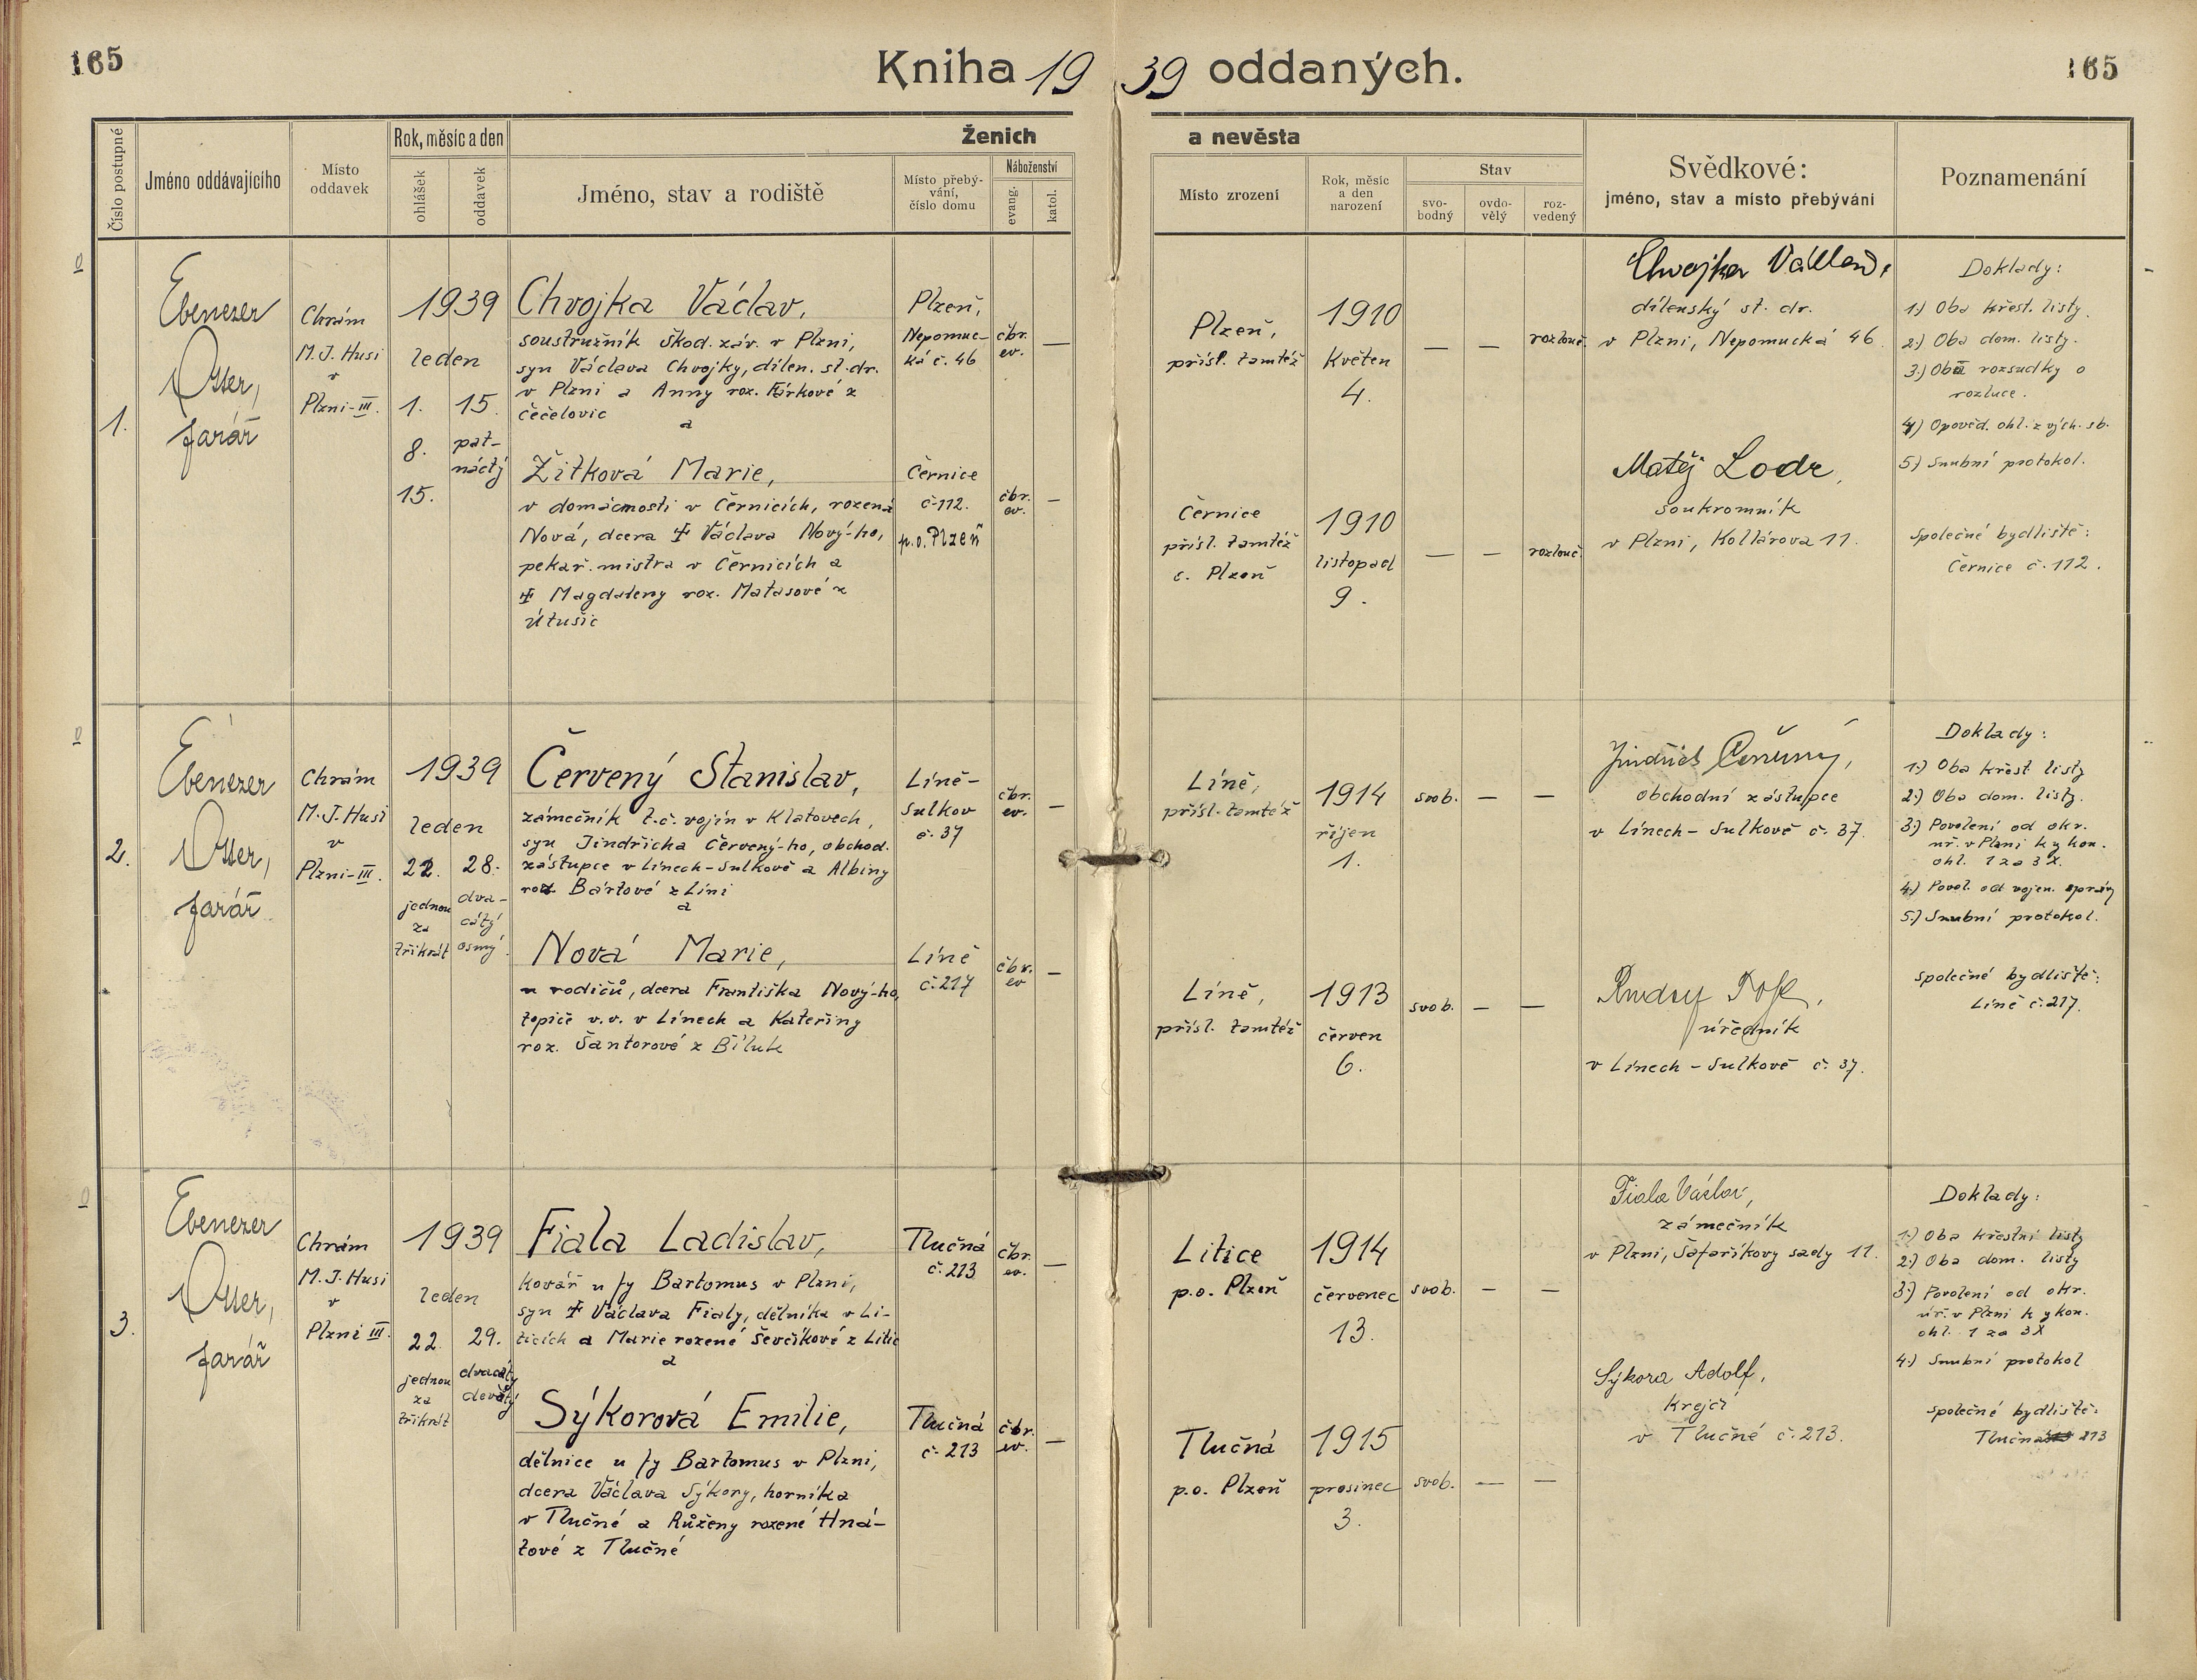 165
Kniha 1939 oddaných.
165
Číslo postupné
Jméno oddávajícího
Místo
oddavek
Rok, měsíc a den
ohlášek
oddavek
Ženich
a nevěsta
Jméno, stav a rodiště
Místo přebý-
vání,
číslo domu
Náboženství
evang.
katol.
Místo zrození
Rok, měsíc
a den
narození
Stav
svo-
bodný
ovdo-
vělý
roz-
vedený
Svědkové:
jméno, stav a místo přebývání
Poznamenání
1.
Ebenezer
Otter,
farář
Chrám
M. J. Husi
v
Plzni-III.
1939
leden
1. 15.
8. pat-
náctý
15.
Chvojka Václav,
soustružník škod. záv. v Plzni,
syn Václava Chvojky, dílen. st. dr.
v Plzni a Anny roz. Fárkové z
Čečelovic
a
Žitková Marie,
v domácnosti v Černicích, rozená
Nová, dcera ‡ Václava Nový-ho,
pekař. mistra v Černicích a
‡ Magdaleny roz. Matasové z
Útušic
Plzeň,
Nepomuc-
ká č. 46
čbr.
ev.
—
Černice
č. 112.
p. o. Plzeň
čbr.
ev.
—
Plzeň,
přísl. tamtéž
1910
Květen
4.
— — rozlouč.
Černice
přísl. tamtéž
c. Plzeň
1910
listopad
9.
— — rozlouč.
Chvojka Václav,
dílenský st. dr.
v Plzni, Nepomucká 46.
Matěj Lodr,
soukromník
v Plzni, Kollárova 11.
Doklady:
1.) Oba křest. listy.
2.) Oba dom. listy.
3.) Oba rozsudky o
rozluce.
4.) Opověd. ohl. z vých. sb.
5.) Snubní protokol.
Společné bydliště:
Černice č. 112.
2.
Ebenezer
Otter,
farář
Chrám
M. J. Husi
v
Plzni-III.
1939
leden
22. 28.
jednou
za
třikrát
dva-
cátý
osmý.
Červený Stanislav,
zámečník t. č. vojín v Klatovech,
syn Jindřicha Červený-ho, obchod.
zástupce v Línech-Sulkově a Albiny
roz. Bártové z Líní
a
Nová Marie,
u rodičů, dcera Františka Nový-ho,
topiče v. v. v Línech a Kateřiny
roz. Šantorové z Bíluk
Líně-
Sulkov
č. 37
čbr.
ev.
—
Líně
č. 217
čbr.
ev
—
Líně,
přísl. tamtéž
1914
říjen
1.
svob. — —
Líně,
přísl. tamtéž
1913
červen
6.
svob. — —
Jindřich Červený,
obchodní zástupce
v Línech-Sulkově č. 37.
Rudolf
úředník
v Línech-Sulkově č. 37.
Doklady:
1.) Oba křest listy
2.) Oba dom. listy.
3.) Povolení od okr.
úř. v Plzni k vykon.
ohl. 1 za 3 X.
4.) Povol. od vojen. správy
5.) Snubní protokol.
Společné bydliště:
Líně č. 217.
3.
Ebenezer
Otter,
farář
Chrám
M. J. Husi
v
Plzni III.
1939
leden
22. 29.
jednou
za
třikrát
dvacátý
devátý
Fiala Ladislav,
kovář u fy Bartomus v Plzni,
syn ‡ Václava Fialy, dělníka v Li-
ticích a Marie rozené Ševčíkové z Litic
a
Sýkorová Emilie,
dělnice u fy Bartomus v Plzni,
dcera Václava Sýkory, horníka
v Tlučné a Růženy rozené Hná-
tové z Tlučné
Tlučná
č. 213
čbr.
ev.
—
Tlučná
č. 213
čbr.
ev.
—
Litice
p. o. Plzeň
1914
červenec
13.
svob. — —
Tlučná
p. o. Plzeň
1915
prosinec
3.
svob. — —
Fiala Václav,
zámečník
v Plzni, Šafaříkovy sady 11.
Sýkora Adolf,
krejčí
v Tlučné č. 213.
Doklady:
1.) Oba křestní listy
2.) Oba dom. listy
3.) Povolení od okr.
úř. v Plzni k vykon.
ohl. 1 za 3 X
4.) Snubní protokol
Společné bydliště:
Tlučná 213